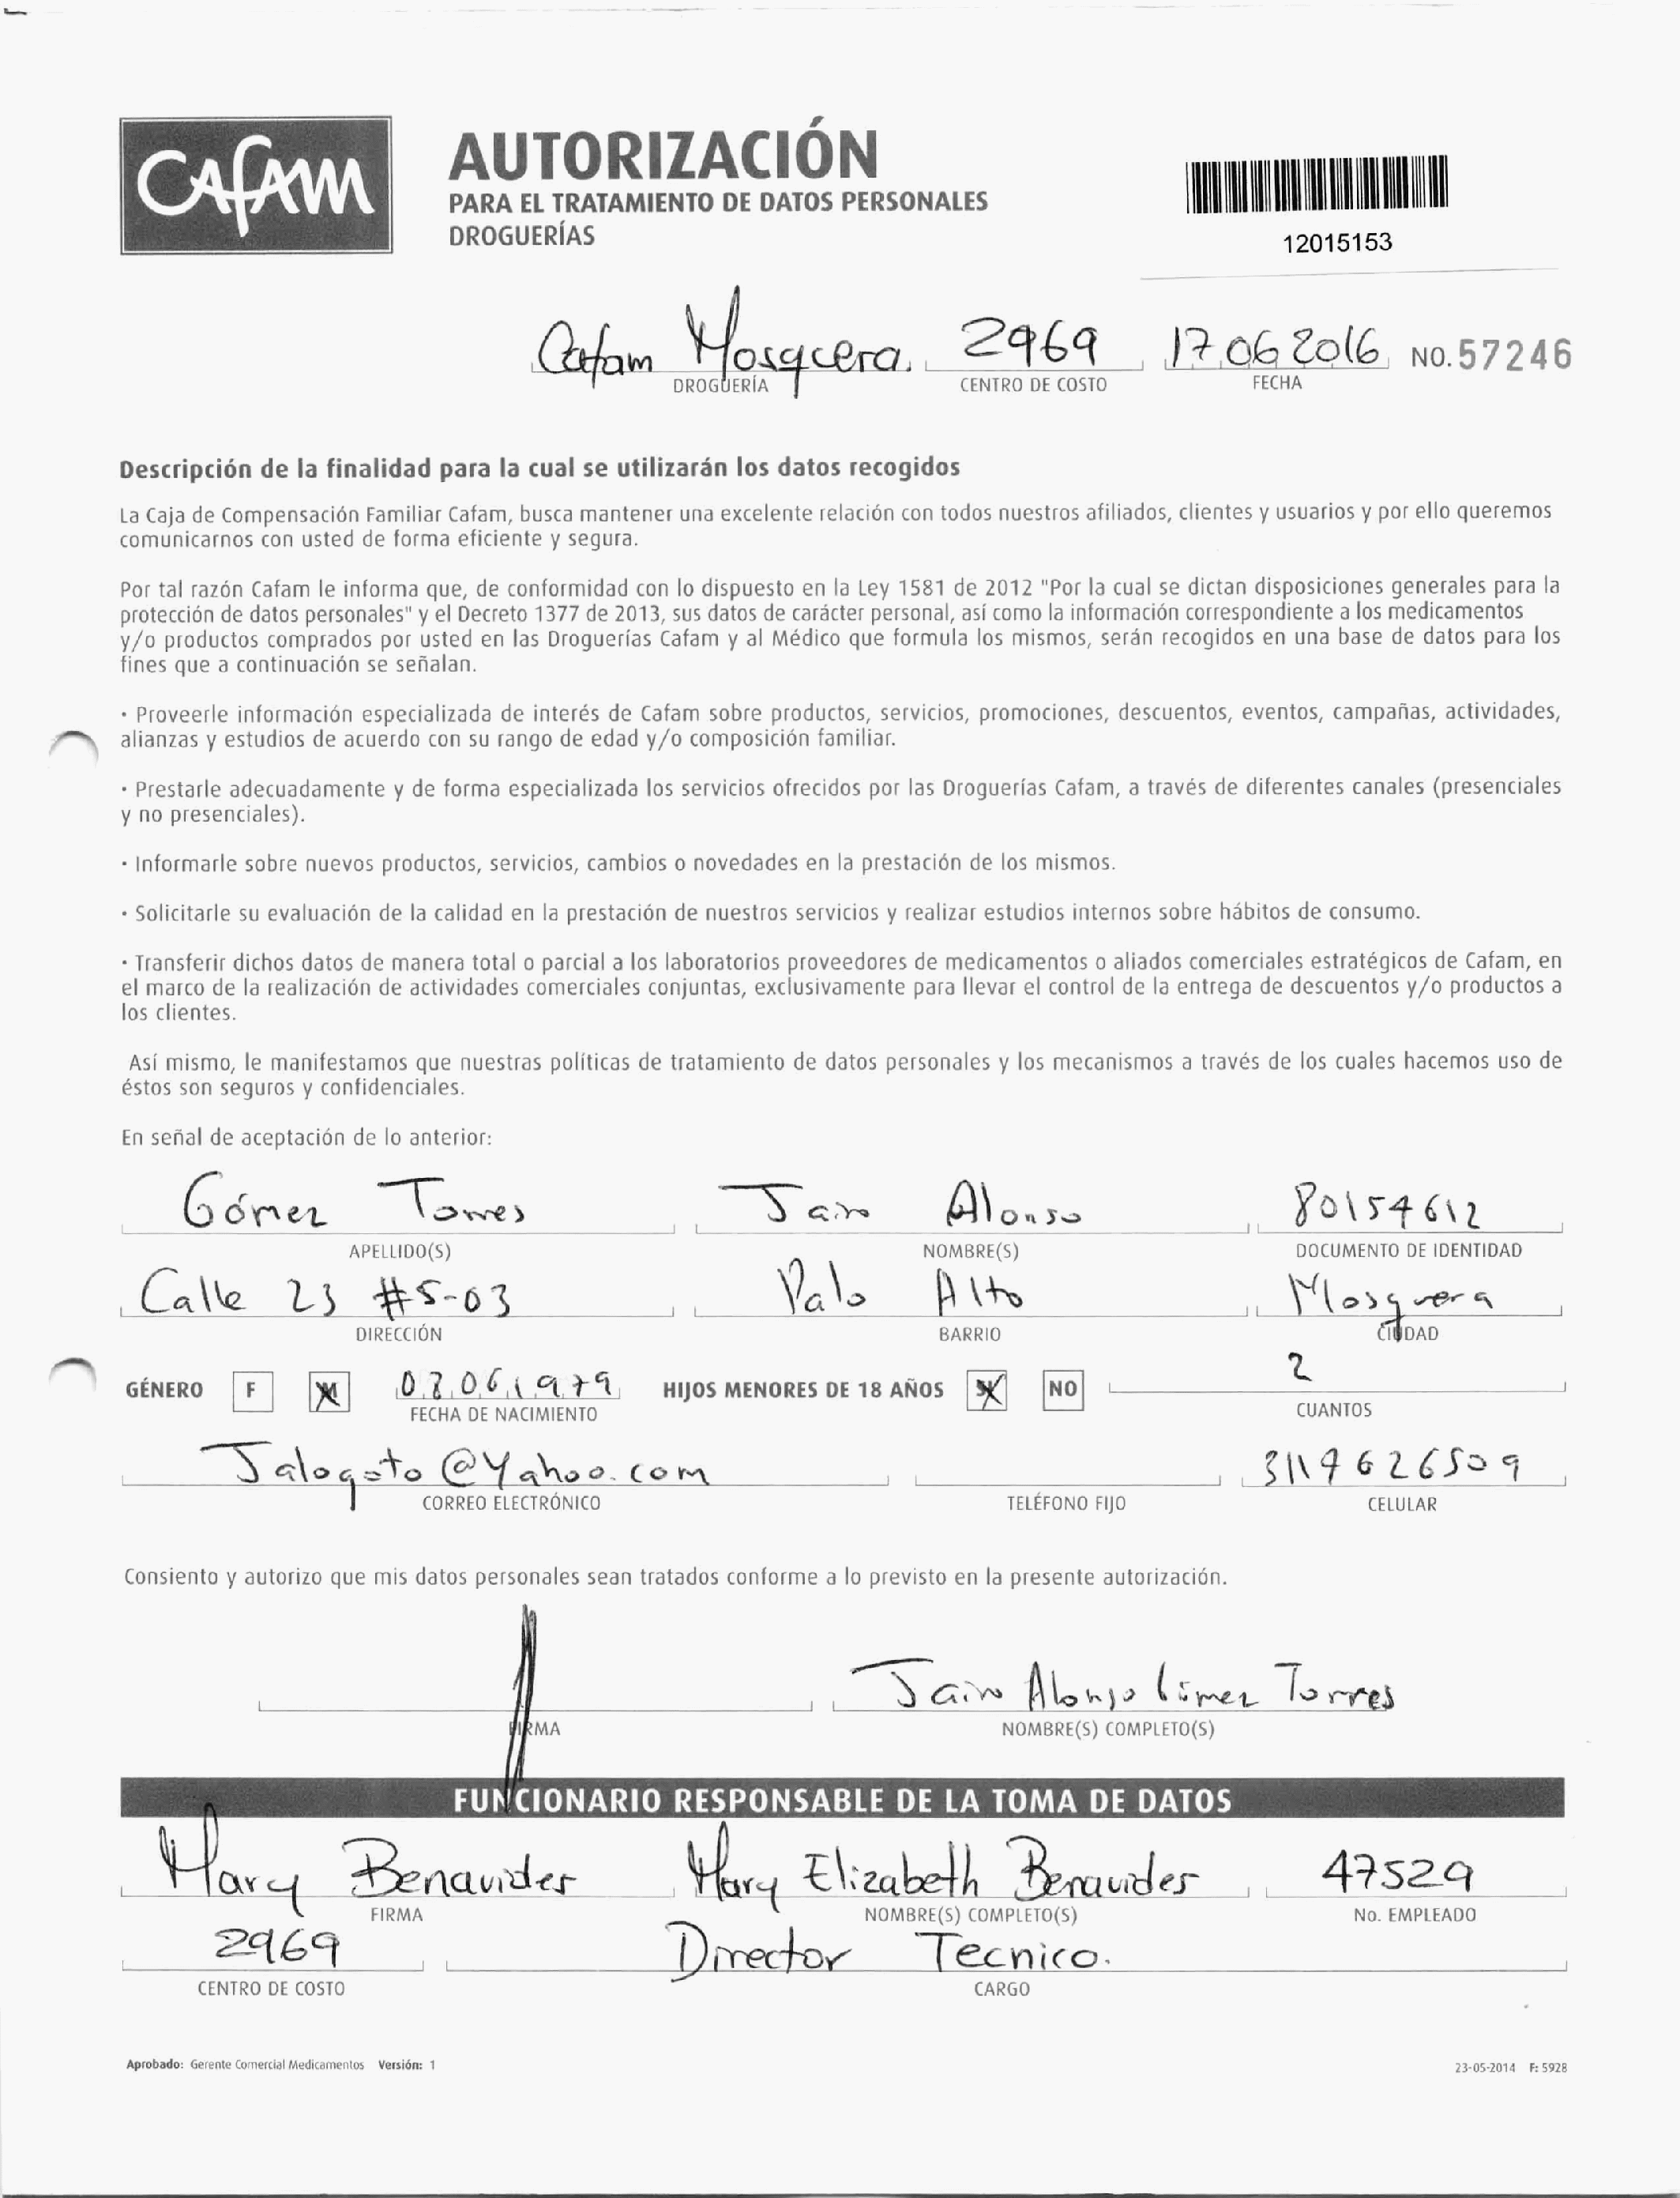 CAFAM
AUTORIZACIÓN
PARA EL TRATAMIENTO DE DATOS PERSONALES
DROGUERÍAS
12015153
Cafam Mosquera. 2969 17 06 2016 NO. 57246
DROGUERÍA CENTRO DE COSTO FECHA
Descripción de la finalidad para la cual se utilizarán los datos recogidos
La Caja de Compensación Familiar Cafam, busca mantener una excelente relación con todos nuestros afiliados, clientes y usuarios y por ello queremos
comunicarnos con usted de forma eficiente y segura.
Por tal razón Cafam le informa que, de conformidad con lo dispuesto en la Ley 1581 de 2012 "Por la cual se dictan disposiciones generales para la
protección de datos personales" y el Decreto 1377 de 2013, sus datos de carácter personal, así como la información correspondiente a los medicamentos
y/o productos comprados por usted en las Droguerías Cafam y al Médico que formula los mismos, serán recogidos en una base de datos para los
fines que a continuación se señalan.
· Proveerle información especializada de interés de Cafam sobre productos, servicios, promociones, descuentos, eventos, campañas, actividades,
alianzas y estudios de acuerdo con su rango de edad y/o composición familiar.
· Prestarle adecuadamente y de forma especializada los servicios ofrecidos por las Droguerías Cafam, a través de diferentes canales (presenciales
y no presenciales).
· Informarle sobre nuevos productos, servicios, cambios o novedades en la prestación de los mismos.
· Solicitarle su evaluación de la calidad en la prestación de nuestros servicios y realizar estudios internos sobre hábitos de consumo.
· Transferir dichos datos de manera total o parcial a los laboratorios proveedores de medicamentos o aliados comerciales estratégicos de Cafam, en
el marco de la realización de actividades comerciales conjuntas, exclusivamente para llevar el control de la entrega de descuentos y/o productos a
los clientes.
Así mismo, le manifestamos que nuestras políticas de tratamiento de datos personales y los mecanismos a través de los cuales hacemos uso de
éstos son seguros y confidenciales.
En señal de aceptación de lo anterior:
Gómez Torres Jairo Alonso 80154612
APELLIDO(S) NOMBRE(S) DOCUMENTO DE IDENTIDAD
Calle 23 #5-03 Palo Alto Mosquera
DIRECCIÓN BARRIO CIUDAD
GÉNERO F M HIJOS MENORES DE 18 AÑOS SI NO 2
FECHA DE NACIMIENTO CUANTOS
Jalogoto@Yahoo.com 3117626509
CORREO ELECTRÓNICO TELÉFONO FIJO CELULAR
Consiento y autorizo que mis datos personales sean tratados conforme a lo previsto en la presente autorización.
Jairo Alonso Gómez Torres
FIRMA NOMBRE(S) COMPLETO(S)
FUNCIONARIO RESPONSABLE DE LA TOMA DE DATOS
Mary Benavides Mary Elizabeth Benavides 47529
FIRMA NOMBRE(S) COMPLETO(S) No. EMPLEADO
2969 Director Tecnico.
CENTRO DE COSTO CARGO
Aprobado: Gerente Comercial Medicamentos Versión: 1 23-05-2014 F: 5928